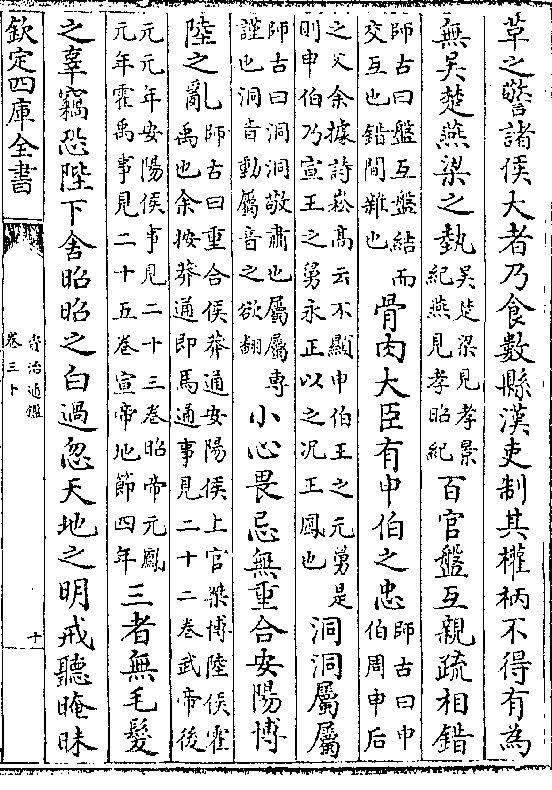 草之警諸侯大者乃食數縣漢吏制其權柄不得有為
無吳楚燕梁之埶
吳楚梁見孝景
紀燕見孝昭紀
百官盤互親疏相錯
師古曰盤互盤結而
交互也錯間雜也
骨肉大臣有申伯之忠
師古曰申
伯周申后
之父余據詩崧髙云不顯申伯王之元舅是
則申伯乃宣王之舅永正以之况王鳳也
洞洞屬屬
師古曰洞洞敬肅也屬屬專
謹也洞音動屬音之欲翻
小心畏忌無重合安陽博
陸之亂
師古曰重合侯莽通安陽侯上官桀博陸侯霍
禹也余按莽通即馬通事見二十二卷武帝後
元元年安陽侯事見二十三卷昭帝元鳳
元年霍禹事見二十五卷宣帝地節四年
三者無毛髮
之辜竊恐陛下舍昭昭之白過忽天地之明戒聽晻昧
欽定四庫全書
資治通鑑
卷三十
十